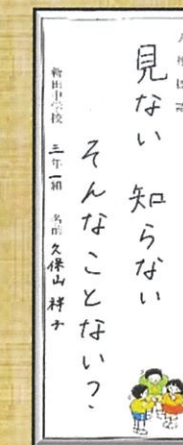 人権標語
見ない 知らない
そんなことない？
新田中学校 三年一組 名前 久保山 祥子